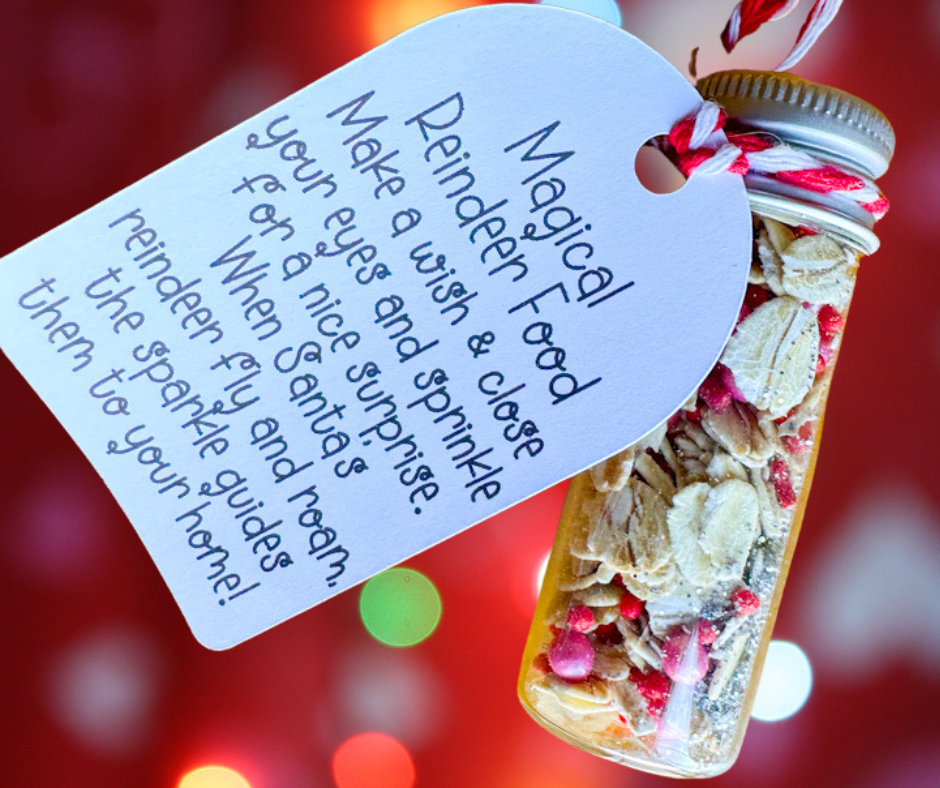 Magical
Reindeer Food
Make a wish & close
your eyes and sprinkle
for a nice surprise.
When Santas
reindeer fly and roam,
the sparkle guides
them to your home!